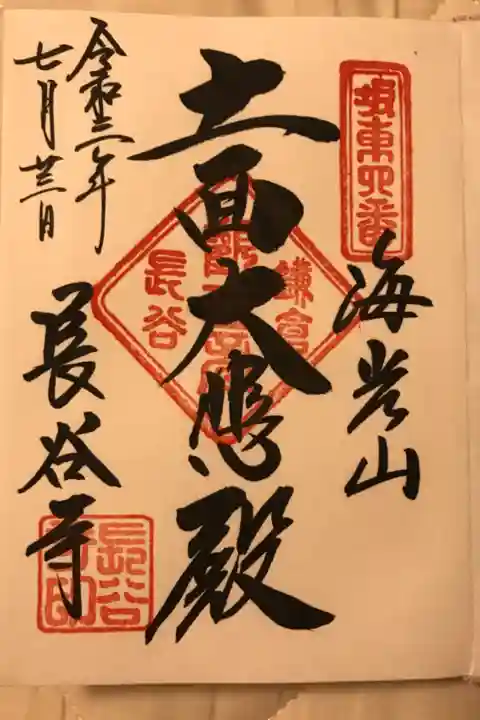 坂東四番
海光山
十一面大悲殿
鎌倉
長谷
令和三年
七月廿三日
長谷寺
長谷寺印